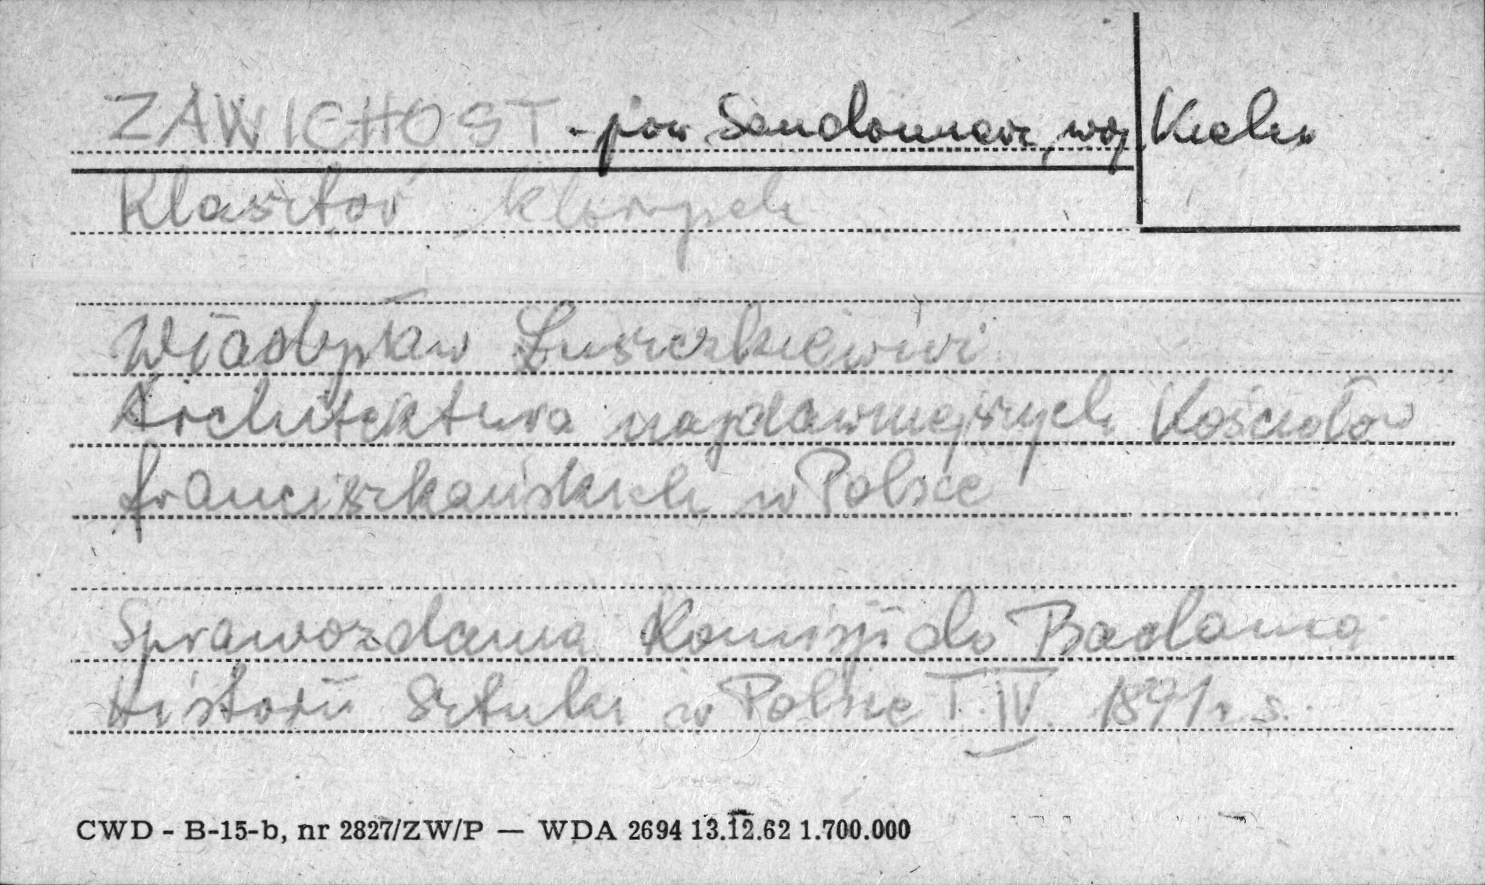 ZAWICHOST - pow Sandomierz, woj. Kielce
Klasztor klarysek
Władysław Łuszczkiewicz
Architektura najdawniejszych Kościołów
franciszkańskich w Polsce
Sprawozdania Komisji do Badania
Historii Sztuki w Polsce T. IV. 1891 r. s.
CWD - B-15-b, nr 2827/ZW/P — WDA 2694 13.12.62 1.700.000